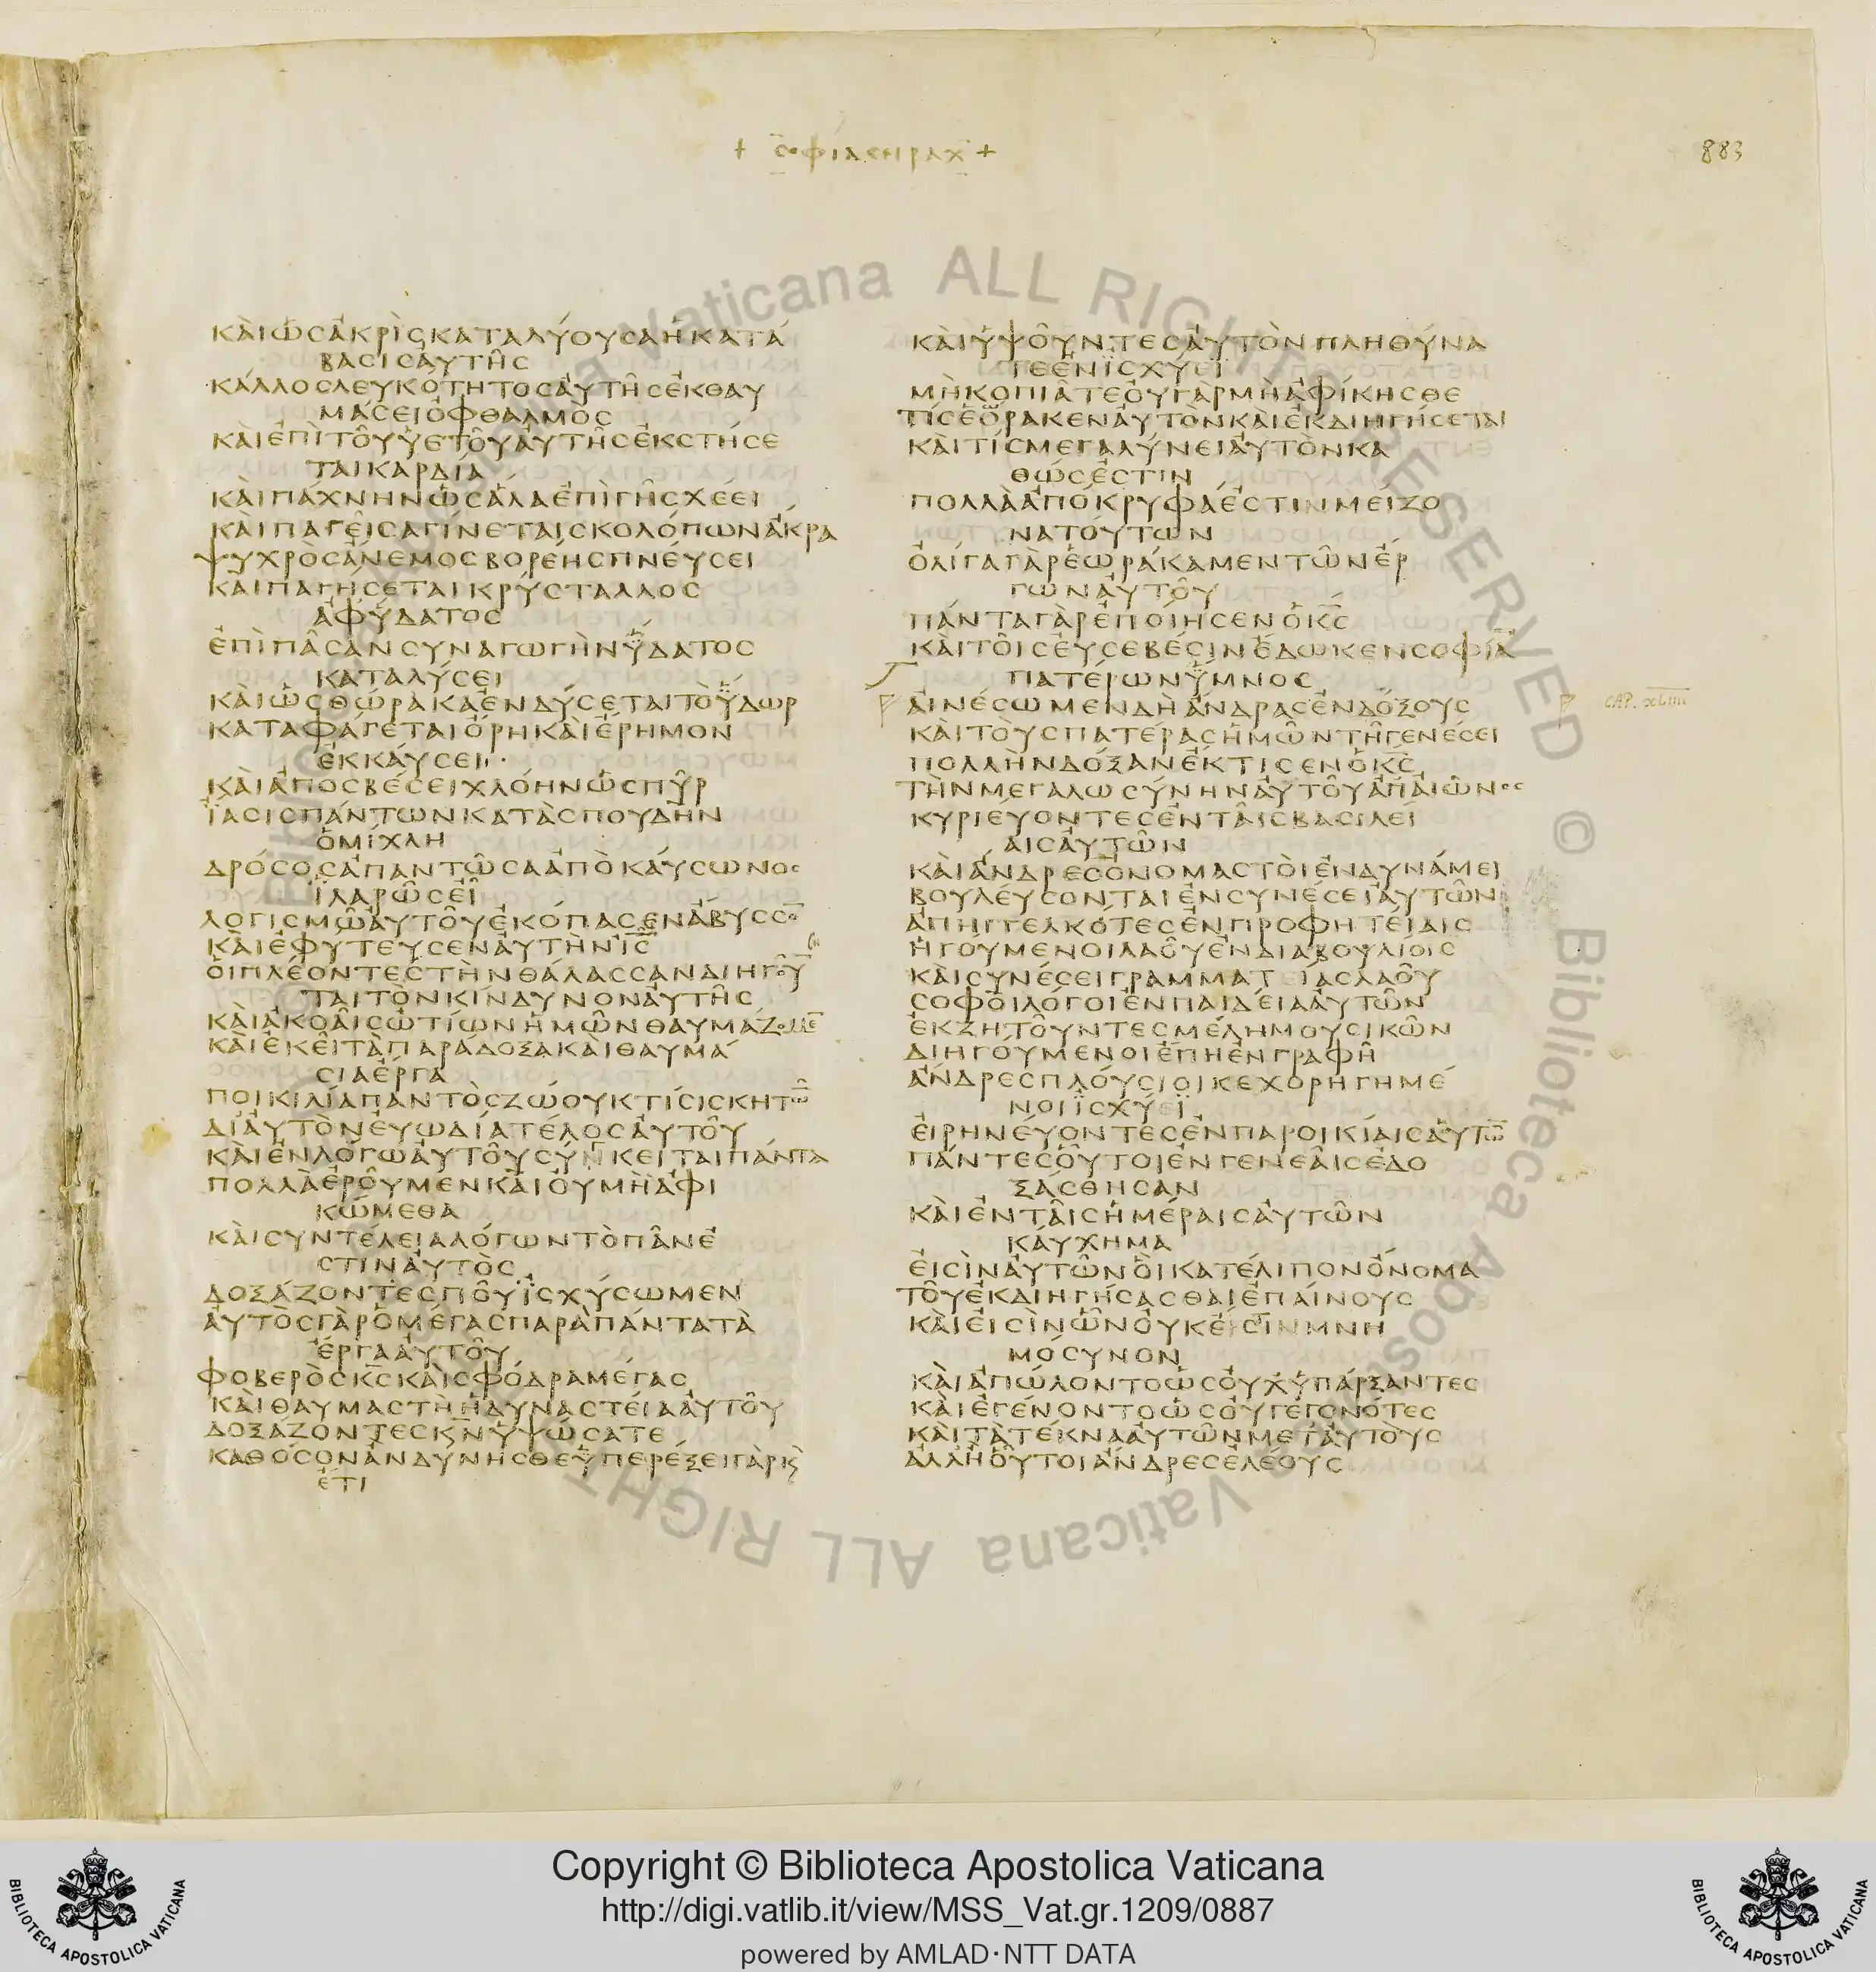 + σοφία σειραχ +
883
ΚΑΙ ΩΣ ΑΚΡΙΣ ΚΑΤΑΛΥΟΥΣΑ Η ΚΑΤΑ
ΒΑΣΙΣ ΑΥΤΗΣ
ΚΑΛΛΟΣ ΛΕΥΚΟΤΗΤΟΣ ΑΥΤΗΣ ΕΚΘΑΥ
ΜΑΣΕΙ ΟΦΘΑΛΜΟΣ
ΚΑΙ ΕΠΙ ΤΟΥ ΥΕΤΟΥ ΑΥΤΗΣ ΕΚΣΤΗΣΕ
ΤΑΙ ΚΑΡΔΙΑ
ΚΑΙ ΠΑΧΝΗΝ ΩΣ ΑΛΑ ΕΠΙ ΓΗΣ ΧΕΕΙ
ΚΑΙ ΠΑΓΕΙΣΑ ΓΙΝΕΤΑΙ ΣΚΟΛΟΠΩΝ ΑΚΡΑ
ΨΥΧΡΟΣ ΑΝΕΜΟΣ ΒΟΡΕΗΣ ΠΝΕΥΣΕΙ
ΚΑΙ ΠΑΓΗΣΕΤΑΙ ΚΡΥΣΤΑΛΛΟΣ
ΑΦ ΥΔΑΤΟΣ
ΕΠΙ ΠΑΣΑΝ ΣΥΝΑΓΩΓΗΝ ΥΔΑΤΟΣ
ΚΑΤΑΛΥΣΕΙ
ΚΑΙ ΩΣ ΘΩΡΑΚΑ ΕΝΔΥΣΕΤΑΙ ΤΟ ΥΔΩΡ
ΚΑΤΑΦΑΓΕΤΑΙ ΟΡΗ ΚΑΙ ΕΡΗΜΟΝ
ΕΚΚΑΥΣΕΙ
ΚΑΙ ΑΠΟΣΒΕΣΕΙ ΧΛΟΗΝ ΩΣ ΠΥΡ
ΙΑΣΙΣ ΠΑΝΤΩΝ ΚΑΤΑ ΣΠΟΥΔΗΝ
ΟΜΙΧΛΗ
ΔΡΟΣΟΣ ΑΠΑΝΤΩΣΑ ΑΠΟ ΚΑΥΣΩΝΟΣ
ΙΛΑΡΩΣΕΙ
ΛΟΓΙΣΜΩ ΑΥΤΟΥ ΕΚΟΠΑΣΕΝ ΑΒΥΣΣΟ̅
ΚΑΙ ΕΦΥΤΕΥΣΕΝ ΑΥΤΗΝ Ι̅Σ̅
ΟΙ ΠΛΕΟΝΤΕΣ ΤΗΝ ΘΑΛΑΣΣΑΝ ΔΙΗΓΟΥ̅
ΤΑΙ ΤΟΝ ΚΙΝΔΥΝΟΝ ΑΥΤΗΣ
ΚΑΙ ΑΚΟΑΙΣ ΩΤΙΩΝ ΗΜΩΝ ΘΑΥΜΑΖΟΜΕ̅
ΚΑΙ ΕΚΕΙ ΤΑ ΠΑΡΑΔΟΞΑ ΚΑΙ ΘΑΥΜΑ
ΣΙΑ ΕΡΓΑ
ΠΟΙΚΙΛΙΑ ΠΑΝΤΟΣ ΖΩΟΥ ΚΤΙΣΙΣ ΚΗΤΩ̅
ΔΙ ΑΥΤΟΝ ΕΥΩΔΙΑ ΤΕΛΟΣ ΑΥΤΟΥ
ΚΑΙ ΕΝ ΛΟΓΩ ΑΥΤΟΥ ΣΥΝΚΕΙΤΑΙ ΠΑΝΤΑ
ΠΟΛΛΑ ΕΡΟΥΜΕΝ ΚΑΙ ΟΥ ΜΗ ΑΦΙ
ΚΩΜΕΘΑ
ΚΑΙ ΣΥΝΤΕΛΕΙΑ ΛΟΓΩΝ ΤΟ ΠΑΝ Ε
ΣΤΙΝ ΑΥΤΟΣ
ΔΟΞΑΖΟΝΤΕΣ ΠΟΥ ΙΣΧΥΣΩΜΕΝ
ΑΥΤΟΣ ΓΑΡ Ο ΜΕΓΑΣ ΠΑΡΑ ΠΑΝΤΑ ΤΑ
ΕΡΓΑ ΑΥΤΟΥ
ΦΟΒΕΡΟΣ Κ̅Σ̅ ΚΑΙ ΣΦΟΔΡΑ ΜΕΓΑΣ
ΚΑΙ ΘΑΥΜΑΣΤΗ Η ΔΥΝΑΣΤΕΙΑ ΑΥΤΟΥ
ΔΟΞΑΖΟΝΤΕΣ Κ̅Ν̅ ΥΨΩΣΑΤΕ
ΚΑΘ ΟΣΟΝ ΑΝ ΔΥΝΗΣΘΕ ΥΠΕΡΕΞΕΙ ΓΑΡ Κ̀
ΕΤΙ
ΚΑΙ ΥΨΟΥΝΤΕΣ ΑΥΤΟΝ ΠΛΗΘΥΝΑ
ΤΕ ΕΝ ΙΣΧΥΕΙ
ΜΗ ΚΟΠΙΑΤΕ ΟΥ ΓΑΡ ΜΗ ΑΦΙΚΗΣΘΕ
ΤΙΣ ΕΟΡΑΚΕΝ ΑΥΤΟΝ ΚΑΙ ΕΚΔΙΗΓΗΣΕΤΑΙ
ΚΑΙ ΤΙΣ ΜΕΓΑΛΥΝΕΙ ΑΥΤΟΝ ΚΑ
ΘΩΣ ΕΣΤΙΝ
ΠΟΛΛΑ ΑΠΟΚΡΥΦΑ ΕΣΤΙΝ ΜΕΙΖΟ
ΝΑ ΤΟΥΤΩΝ
ΟΛΙΓΑ ΓΑΡ ΕΩΡΑΚΑΜΕΝ ΤΩΝ ΕΡ
ΓΩΝ ΑΥΤΟΥ
ΠΑΝΤΑ ΓΑΡ ΕΠΟΙΗΣΕΝ Ο Κ̅Σ̅
ΚΑΙ ΤΟΙΣ ΕΥΣΕΒΕΣΙΝ ΕΔΩΚΕΝ ΣΟΦΙΑ̅
ΠΑΤΕΡΩΝ ΥΜΝΟΣ
ΑΙΝΕΣΩΜΕΝ ΔΗ ΑΝΔΡΑΣ ΕΝΔΟΞΟΥΣ
CAP. XLIIII
ΚΑΙ ΤΟΥΣ ΠΑΤΕΡΑΣ ΗΜΩΝ ΤΗ ΓΕΝΕΣΕΙ
ΠΟΛΛΗΝ ΔΟΞΑΝ ΕΚΤΙΣΕΝ Ο Κ̅Σ̅
ΤΗΝ ΜΕΓΑΛΩΣΥΝΗΝ ΑΥΤΟΥ ΑΠ ΑΙΩΝΟΣ
ΚΥΡΙΕΥΟΝΤΕΣ ΕΝ ΤΑΙΣ ΒΑΣΙΛΕΙ
ΑΙΣ ΑΥΤΩΝ
ΚΑΙ ΑΝΔΡΕΣ ΟΝΟΜΑΣΤΟΙ ΕΝ ΔΥΝΑΜΕΙ
ΒΟΥΛΕΥΣΟΝΤΑΙ ΕΝ ΣΥΝΕΣΕΙ ΑΥΤΩΝ
ΑΠΗΓΓΕΛΚΟΤΕΣ ΕΝ ΠΡΟΦΗΤΕΙΑΙΣ
ΗΓΟΥΜΕΝΟΙ ΛΑΟΥ ΕΝ ΔΙΑΒΟΥΛΙΟΙΣ
ΚΑΙ ΣΥΝΕΣΕΙ ΓΡΑΜΜΑΤΕΙΑΣ ΛΑΟΥ
ΣΟΦΟΙ ΛΟΓΟΙ ΕΝ ΠΑΙΔΕΙΑ ΑΥΤΩΝ
ΕΚΖΗΤΟΥΝΤΕΣ ΜΕΛΗ ΜΟΥΣΙΚΩΝ
ΔΙΗΓΟΥΜΕΝΟΙ ΕΠΗ ΕΝ ΓΡΑΦΗ
ΑΝΔΡΕΣ ΠΛΟΥΣΙΟΙ ΚΕΧΟΡΗΓΗΜΕ
ΝΟΙ ΙΣΧΥΕΙ
ΕΙΡΗΝΕΥΟΝΤΕΣ ΕΝ ΠΑΡΟΙΚΙΑΙΣ ΑΥΤΩ̅
ΠΑΝΤΕΣ ΟΥΤΟΙ ΕΝ ΓΕΝΕΑΙΣ ΕΔΟ
ΞΑΣΘΗΣΑΝ
ΚΑΙ ΕΝ ΤΑΙΣ ΗΜΕΡΑΙΣ ΑΥΤΩΝ
ΚΑΥΧΗΜΑ
ΕΙΣΙΝ ΑΥΤΩΝ ΟΙ ΚΑΤΕΛΙΠΟΝ ΟΝΟΜΑ
ΤΟΥ ΕΚΔΙΗΓΗΣΑΣΘΑΙ ΕΠΑΙΝΟΥΣ
ΚΑΙ ΕΙΣΙΝ ΩΝ ΟΥΚ ΕΣΤΙΝ ΜΝΗ
ΜΟΣΥΝΟΝ
ΚΑΙ ΑΠΩΛΟΝΤΟ ΩΣ ΟΥΧ ΥΠΑΡΞΑΝΤΕΣ
ΚΑΙ ΕΓΕΝΟΝΤΟ ΩΣ ΟΥ ΓΕΓΟΝΟΤΕΣ
ΚΑΙ ΤΑ ΤΕΚΝΑ ΑΥΤΩΝ ΜΕΤ ΑΥΤΟΥΣ
ΑΛΛ Η ΟΥΤΟΙ ΑΝΔΡΕΣ ΕΛΕΟΥΣ
Copyright © Biblioteca Apostolica Vaticana
http://digi.vatlib.it/view/MSS_Vat.gr.1209/0887
powered by AMLAD·NTT DATA
BIBLIOTECA APOSTOLICA VATICANA
BIBLIOTECA APOSTOLICA VATICANA